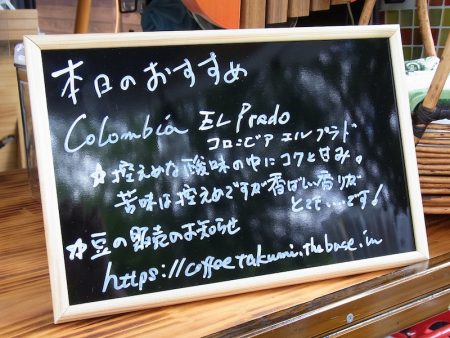 本日のおすすめ
Colombia EL Prado
コロンビア エル プラド
☆控えめな酸味の中にコクと甘み。
苦味は控えめですが香ばしい香りが
とても....です!
☆豆の販売のお知らせ
https://coffeetakumi.thebase.in